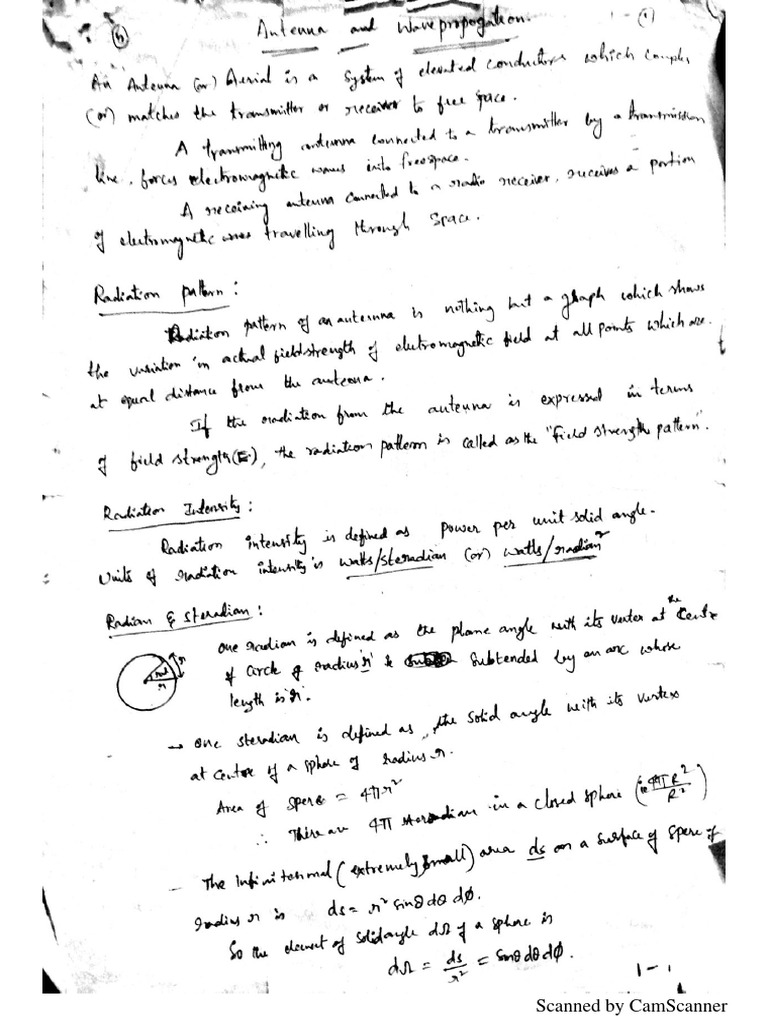 (4) Antenna and Wavepropogation. 1-(1)
An Antenna (or) Aerial is a System of elevated conductors which couples
(or) matches the transmitter or receiver to free space.
A transmitting antenna connected to a transmitter by a transmission
line, forces electromagnetic waves into freespace.
A receiving antenna connected to a radio receiver, receives a portion
of electromagnetic waves travelling through Space.
Radiation pattern:
Radiation pattern of an antenna is nothing but a graph which shows
the variation in actual fieldstrength of electromagnetic field at all points which are
at equal distance from the antenna.
If the radiation from the antenna is expressed in terms
of field strength(E), the radiation pattern is called as the "field strength pattern".
Radiation Intensity:
Radiation intensity is defined as power per unit solid angle.
Units of radiation intensity is watts/steradian (or) watts/radian²
Radian & steradian:
One radian is defined as the plane angle with its vertex at the Centre
of Circle of radius 'r' & Subtended by an arc whose
length is 'r'.
rad
r
r
→ One steradian is defined as the solid angle with its vertex
at centre of a sphere of radius r.
Area of spere = 4πr²
∴ There are 4π steradian in a closed sphere (ie 4πR²/R²)
- The Infinitesmal (extremely small) area ds on a surface of spere of
radius r is ds = r² sinθ dθ dϕ.
So the element of solid angle dΩ of a sphere is
dΩ = ds/r² = sinθ dθ dϕ.
1-1
Scanned by CamScanner